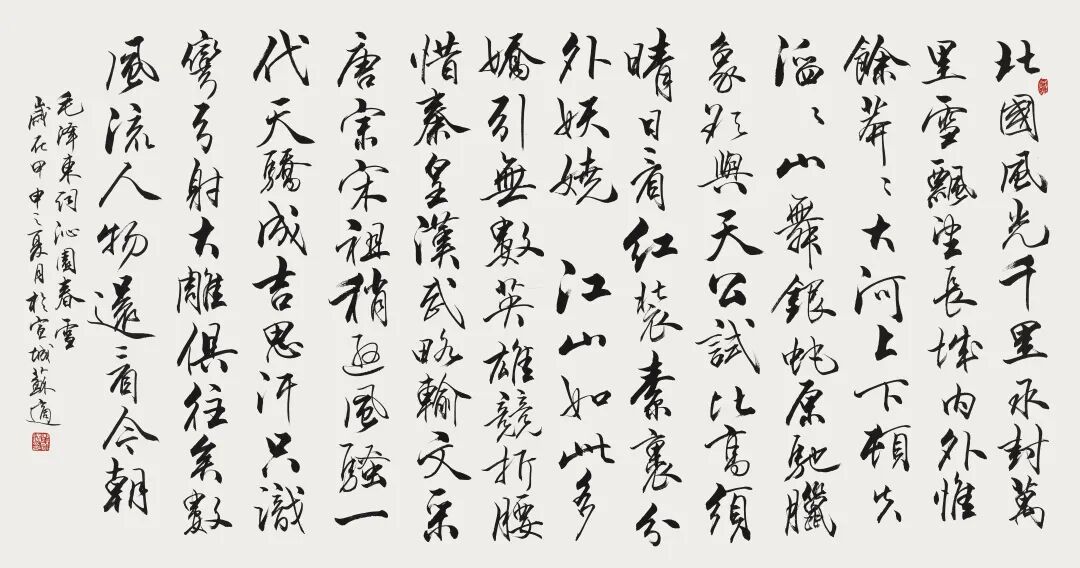 北國風光千里冰封萬
里雪飄望長城內外惟
餘莽〻大河上下頓失
滔〻山舞銀蛇原馳臘
象欲與天公試比高須
晴日看紅裝素裹分
外妖嬈 江山如此多
嬌引無數英雄競折腰
惜秦皇漢武略輸文采
唐宗宋祖稍遜風騷一
代天驕成吉思汗只識
彎弓射大雕俱往矣數
風流人物還看今朝
毛澤東詞沁園春雪
歲在甲申之夏月於宣城蘇適